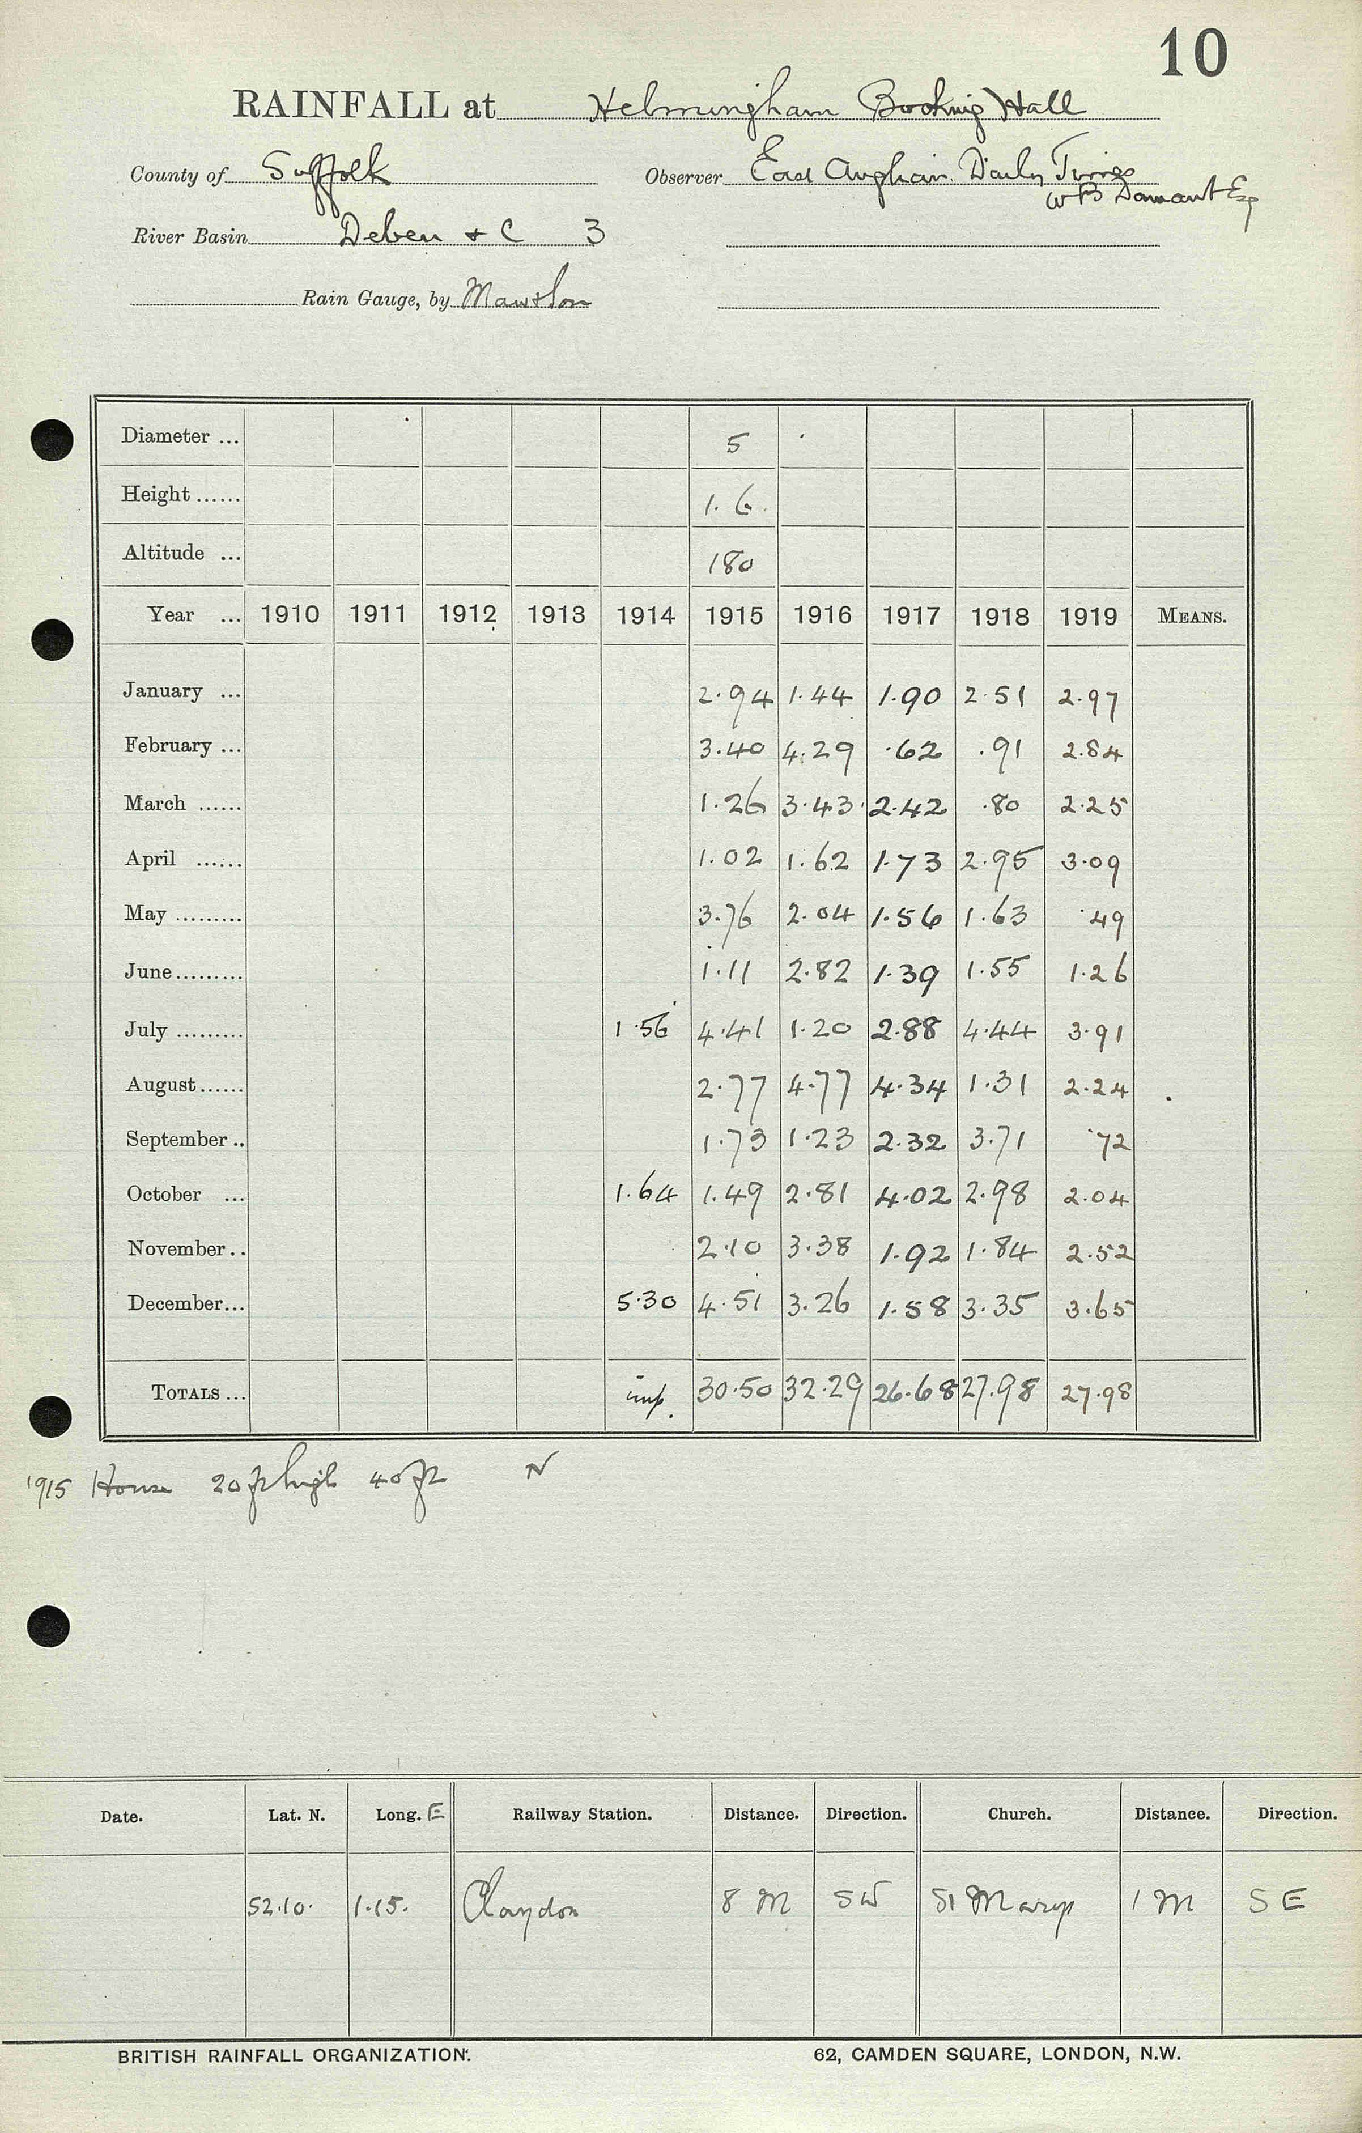 10
RAINFALL at Helmingham Bocking Hall
County of Suffolk Observer East Anglian Daily Times
W B Damant Esq
River Basin Deben & C 3
Rain Gauge, by
Diameter ... 5
Height ...... 1.6.
Altitude ... 180
Year ... 1910 1911 1912 1913 1914 1915 1916 1917 1918 1919 MEANS.
January ... 2.94 1.44 1.90 2.51 2.97
February ... 3.40 4.29 .62 .91 2.84
March ...... 1.26 3.43 2.42 .80 2.25
April ...... 1.02 1.62 1.73 2.95 3.09
May ......... 3.76 2.04 1.56 1.63 .49
June......... 1.11 2.82 1.39 1.55 1.26
July ......... 1.56 4.41 1.20 2.88 4.44 3.91
August...... 2.77 4.77 4.34 1.31 2.24
September .. 1.73 1.23 2.32 3.71 .72
October ... 1.64 1.49 2.81 4.02 2.98 2.04
November .. 2.10 3.38 1.92 1.84 2.52
December... 5.30 4.51 3.26 1.58 3.35 3.65
TOTALS ... imp. 30.50 32.29 26.68 27.98 27.98
1915 House 20 ft high 40 ft N
Date. Lat. N. Long. E Railway Station. Distance. Direction. Church. Distance. Direction.
52.10. 1.15. Claydon 8 M SW St Marys 1 M S E
BRITISH RAINFALL ORGANIZATION. 62, CAMDEN SQUARE, LONDON, N.W.